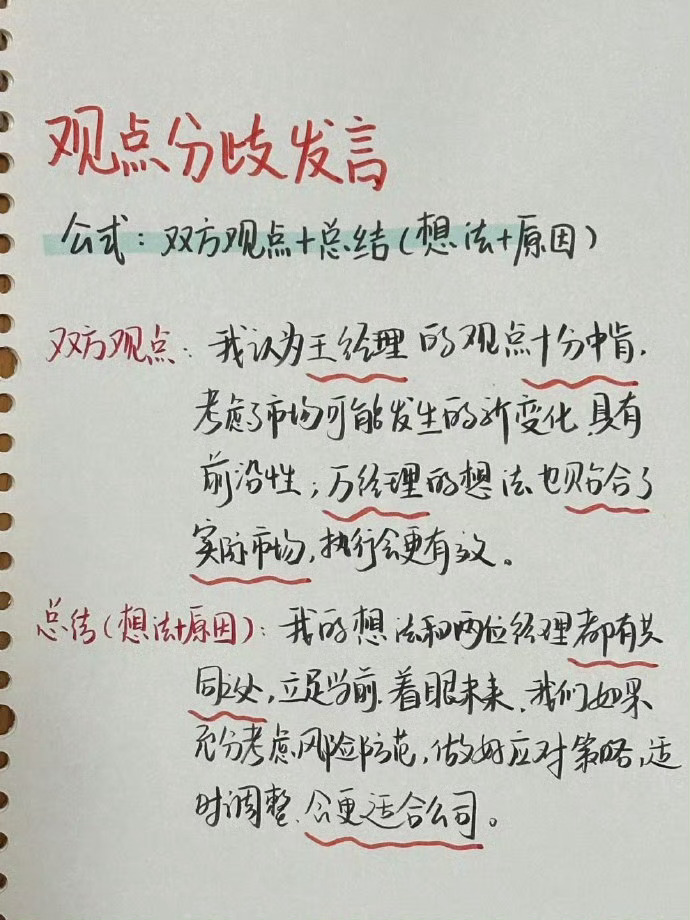 观点分歧发言
公式：双方观点+总结(想法+原因)
双方观点：我认为王经理的观点十分中肯，
考虑了市场可能发生的新变化，具有
前沿性；万经理的想法也贴合了
实际市场，执行会更有效。
总结(想法+原因)：我的想法和两位经理都有共
同之处，立足当前，着眼未来，我们如果
充分考虑风险防范，做好应对策略，适
时调整，会更适合公司。